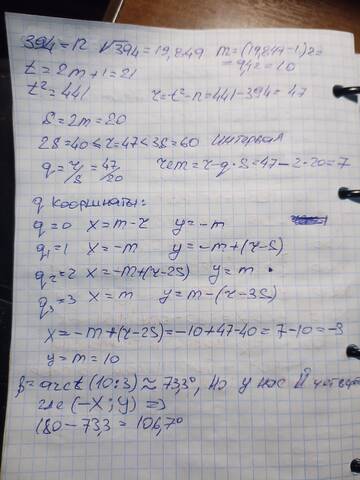 394 = n √394 = 19,849 m = (19,849-1):2=
= 9,42 = 10
t = 2m+1 = 21
t² = 441 r = t²-n = 441-394 = 47
S = 2m = 20
2S = 40 ≤ r = 47 < 3S = 60 интервал
q = r/s = 47/20 rem = r-q·S = 47-2·20 = 7
q координаты:
q = 0 x = m-r y = -m
q₁ = 1 x = -m y = -m+(r-S)
q₂ = 2 x = -m+(r-2S) y = m
q₃ = 3 x = m y = m-(r-3S)
x = -m+(r-2S) = -10+47-40 = 7-10 = -3
y = m = 10
β = arct(10:3) ≈ 73,3°, но у нас II четверть
где (-x; y) ⇒
180-73,3 = 106,7°